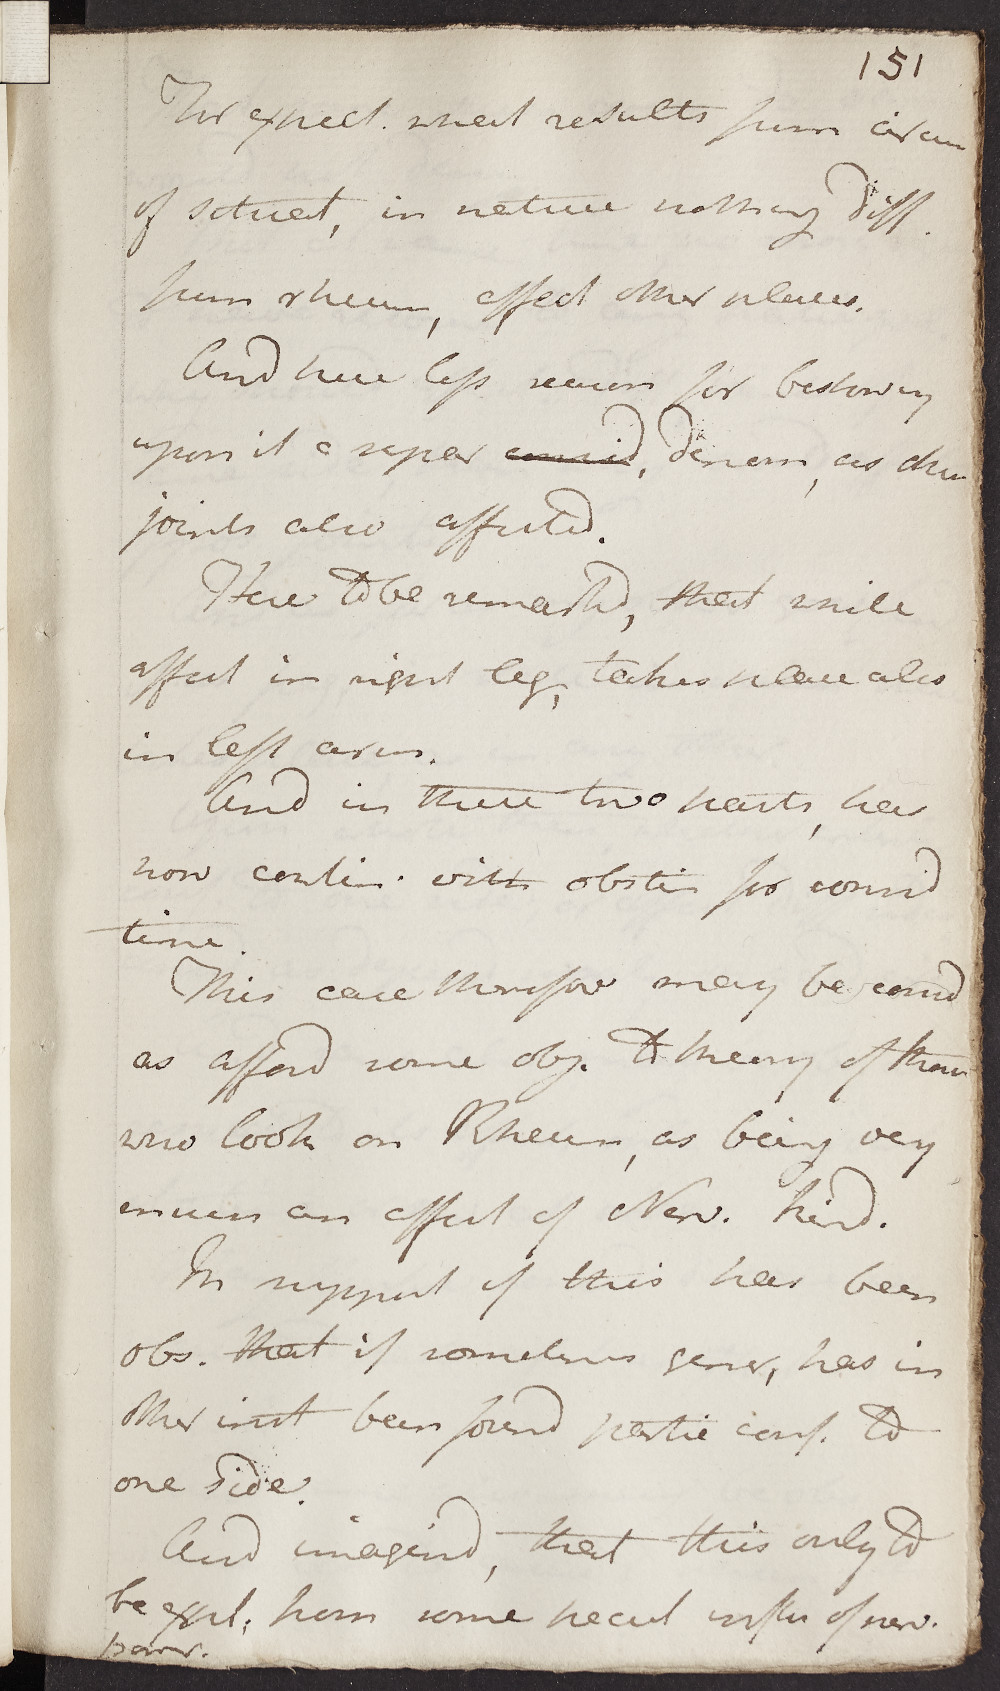 151
For expect. what results from circum
of situat, in nature nothing diff.
from rheum, affect other places.
And here less reason for bestowing
upon it a separ denom, as other
joints also affected.
Here to be remarkd, that while
affect in right leg, takes place also
in left arm.
And in these two parts, has
now contin. with obstin for consid
time.
This case therefore may be considd
as afford some obj. to theory of those
who look on Rheum, as being very
much an affect of Nerv. kind.
In support of this has been
obs. that if sometimes gener, has in
other inst been found partic conf. to
one side.
And imagind, that this only to
be expl. from some pecul influ of nerv.
power.